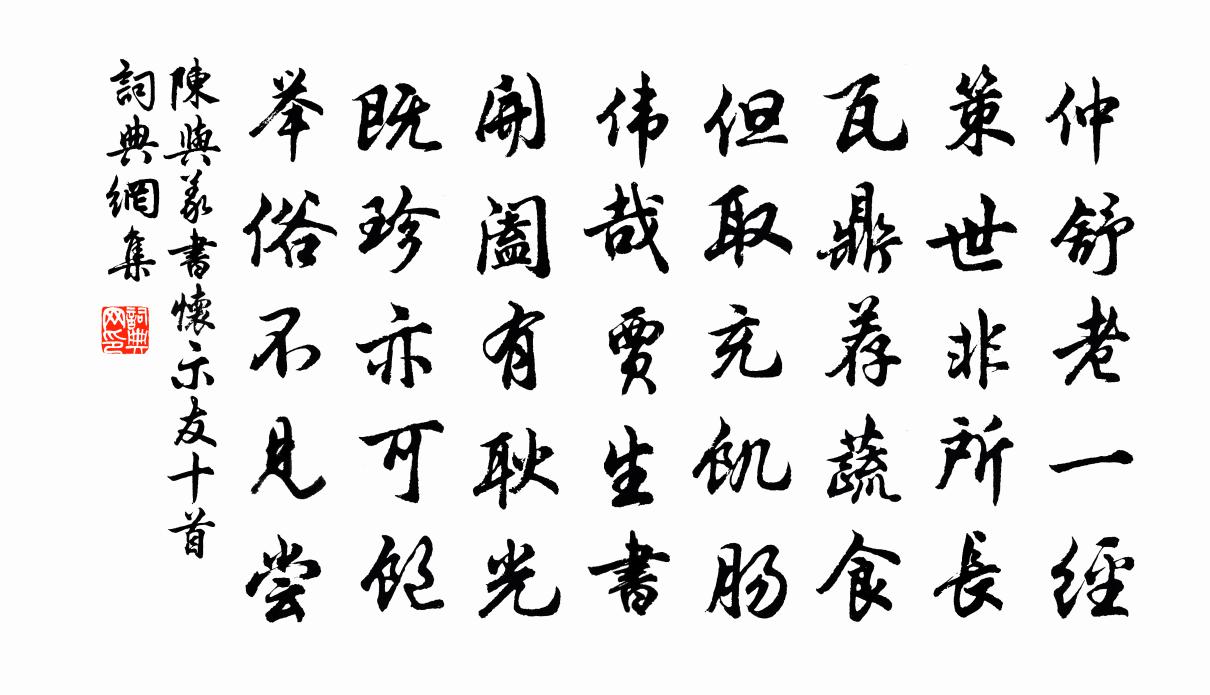 仲舒老一經
策世非所長
瓦鼎荐蔬食
但取充飢肠
伟哉贾生書
開阖有耿光
既珍亦可飽
举俗不見尝
陳與義書懷示友十首
詞典網集
詞典网印